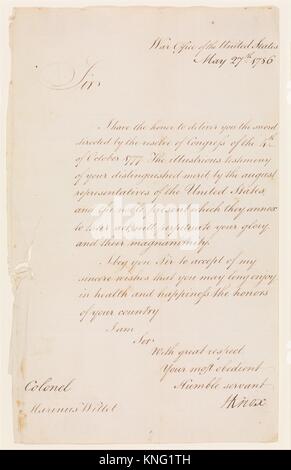 War Office of the United States
May 27th 1786
Sir
I have the honor to deliver you the sword
directed by the resolve of Congress of the 4th
of October 1777. The illustrious testimony
of your distinguished merit by the august
representatives of the United States,
and the present which they annex
to perpetuate your glory,
and their magnanimity.
I beg you Sir to accept of my
sincere wishes that you may long enjoy
in health and happiness the honors
of your country
I am
Sir
With great respect
Your most obedient
Humble servant
HKnox
Colonel
Marinus Willet
alamy
KNG1TH